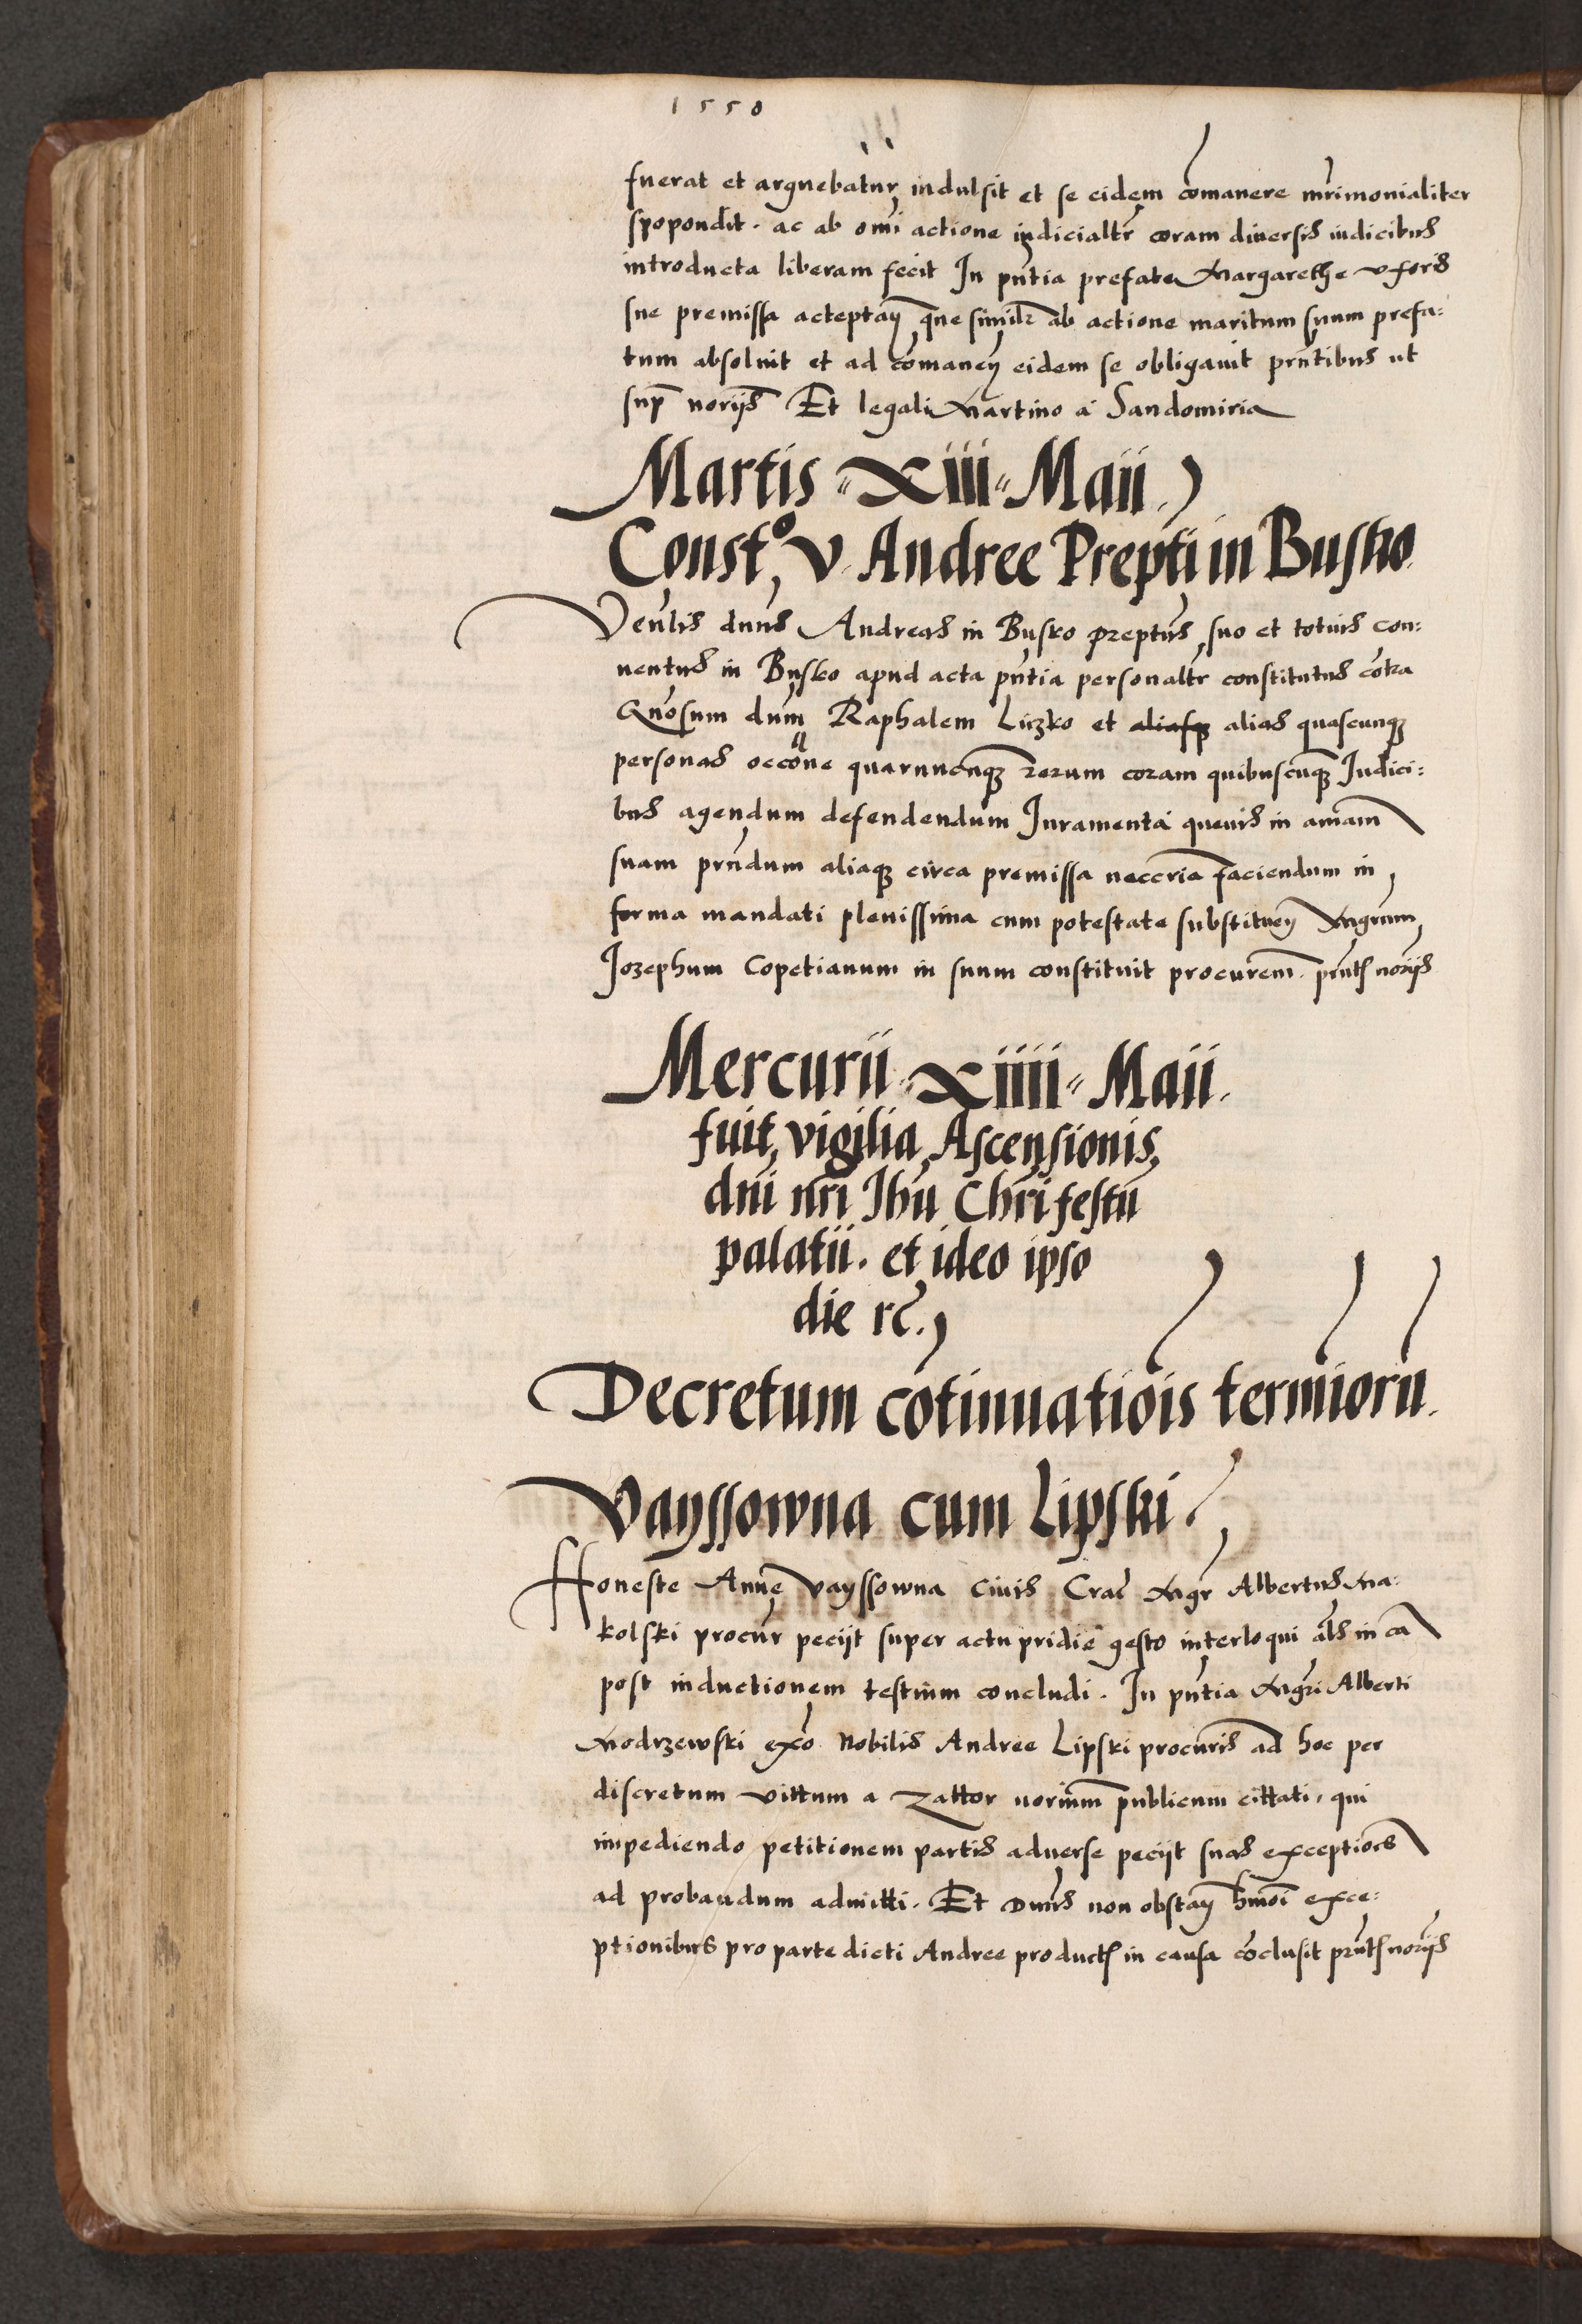 1550
fuerat et arguebatur indulsit et se eidem comanere mrimonialiter
spopondit. ac ab omi actione iudicialtr coram diuersis iudicibus
introducta liberam fecit In pntia prefate Margarethe vxoris
sue premissa acceptan que similr ab actione maritum suum prefa:
tum absoluit et ad comanen eidem se obligauit prntibus ut
sup noriis Et legali Martino a Sandomiria
Martis XIII Maii
Constº v Andree Prepti in Busko
Venlis dnus Andreas in Busko preptus suo et totius con:
uentus in Busko apud acta pntia personaltr constitutus cotra
Gnosum dum Raphalem Liczko et alias quascunq
personas occone quarumcunq rerum coram quibuscunq Iudici:
bus agendum defendendum Iuramenta queuis in amam
suam prndum aliaq circa premissa neccria faciendum in
forma mandati plenissima cum potestate substituen Mgrum
Iozephum Copetianum in suum constituit procurem. prnts noriis
Mercurii XIIII Maii
fuit vigilia Ascensionis
dni nri Ihu Chri festu
palatii. et ideo ipso
die rc.
Decretum cotinuatiois termioru.
Vayssowna cum Lipski
Honeste Anne Vayssowna Ciuis Crac Mgr Albertus Ma:
kolski procur peciit super actu pridie gesto interloqui als in ca
post inductionem testium concludi. In pntia Mgri Alberti
Modrzewski exo Nobilis Andree Lipski procuris ad hoc per
discretum Vittum a Zattor norium publicum cittati, qui
impediendo petitionem partis aduerse peciit suas exceptioes
ad probandum admitti. Et Dnus non obstan hmoi exce:
ptionibus pro parte dicti Andree products in causa coclusit prnts noriis